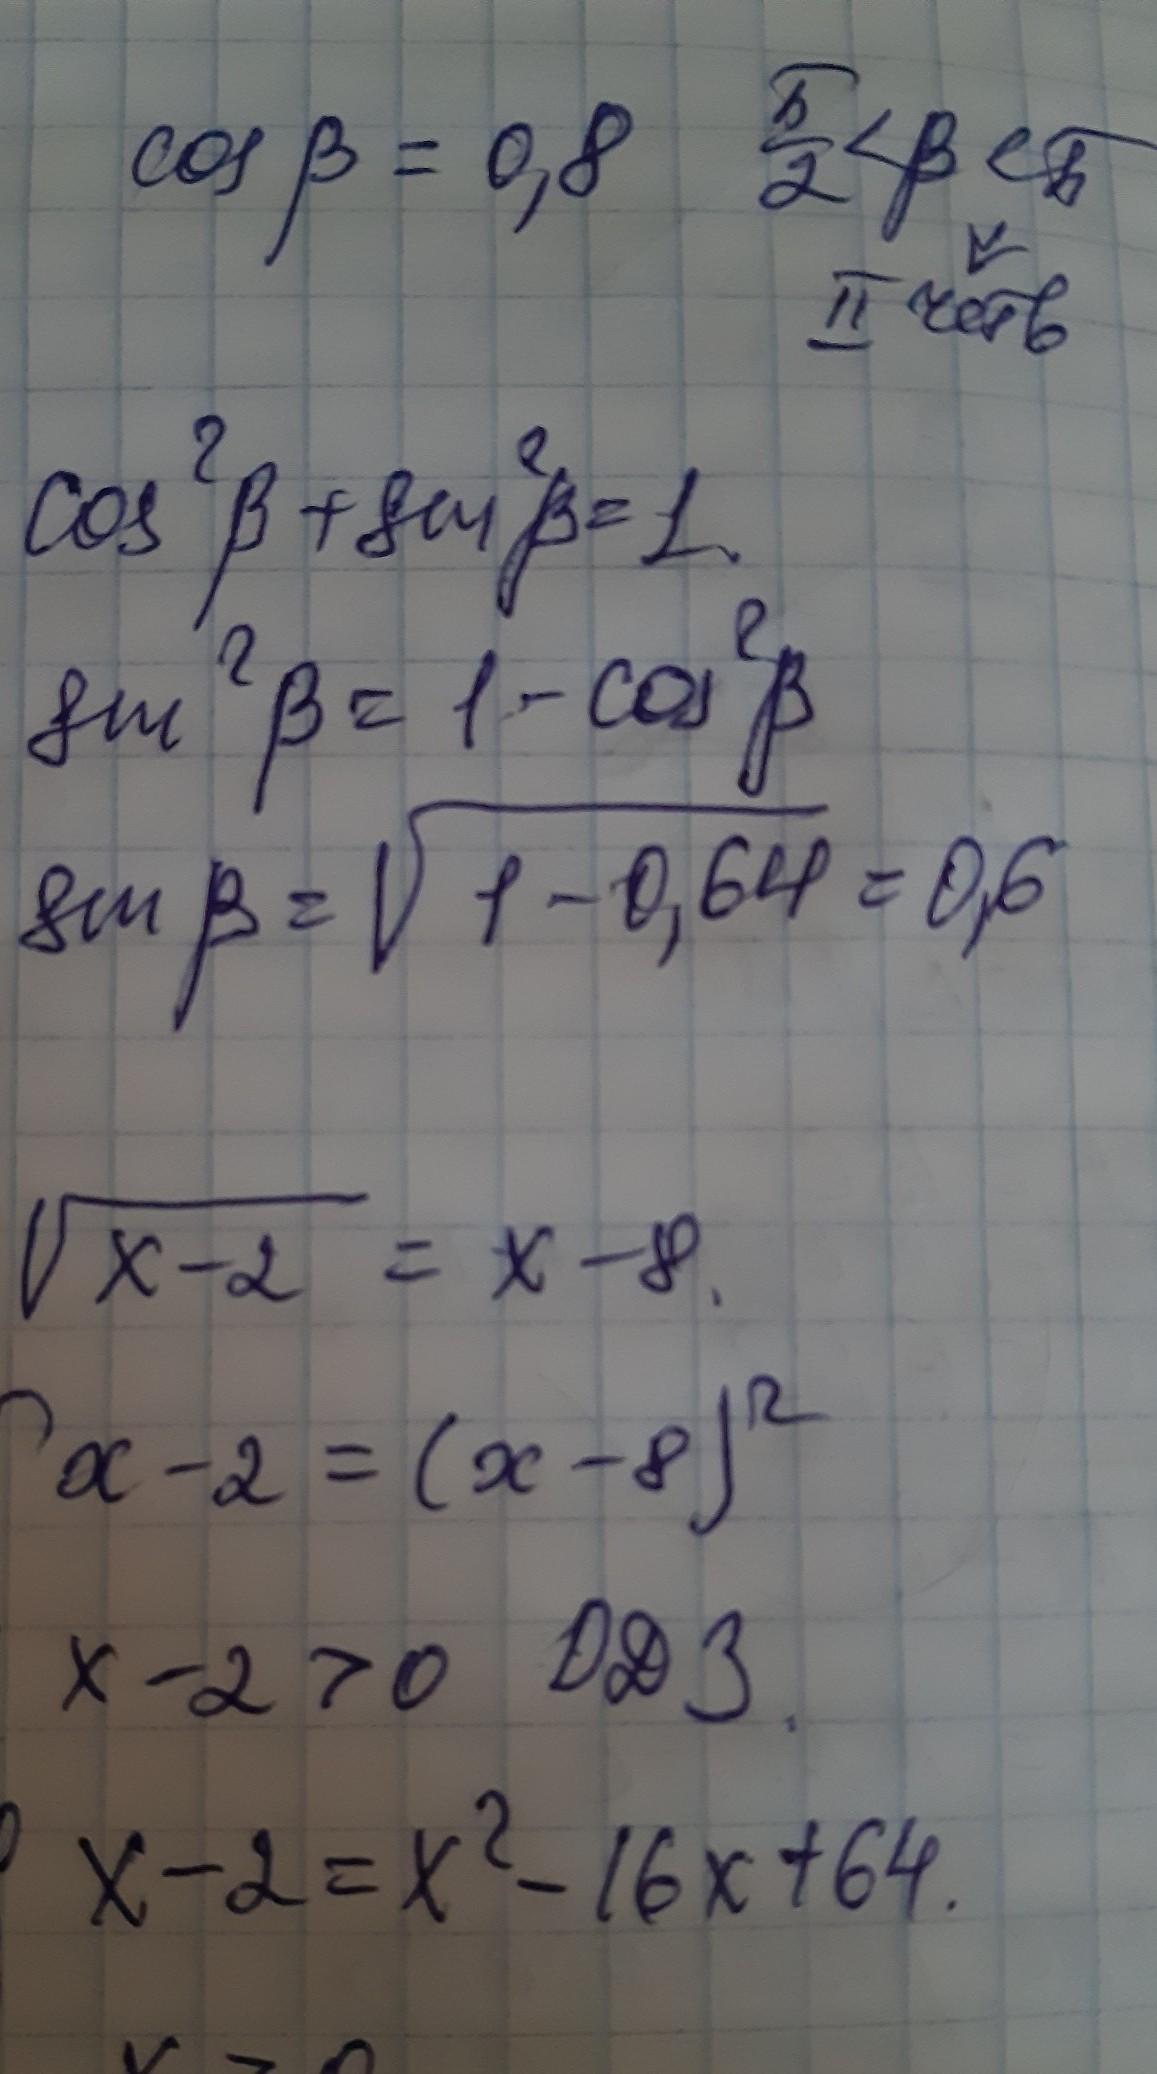 cos β = 0,8   π/2 < β < π
II четв
cos²β + sin²β = 1.
sin²β = 1 - cos²β
sin β = √(1 - 0,64) = 0,6
√(x - 2) = x - 8.
x - 2 = (x - 8)²
x - 2 > 0   ОДЗ.
x - 2 = x² - 16x + 64.